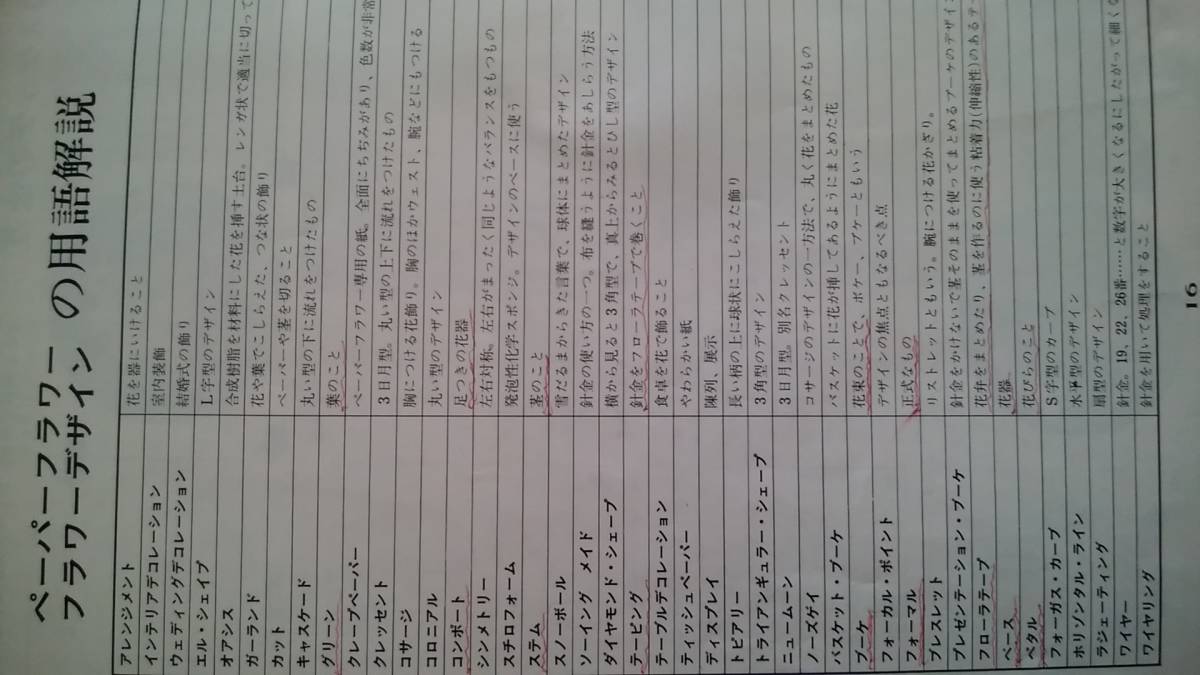 ペーパーフラワー
フラワーデザイン の用語解説
アレンジメント 花を器にいけること
インテリアデコレーション 室内装飾
ウェディングデコレーション 結婚式の飾り
エル・シェイプ L字型のデザイン
オアシス 合成樹脂を材料にした花を挿す土台。レンガ状で適当に切って
ガーランド 花や葉でこしらえた、つな状の飾り
カット ペーパーや茎を切ること
キャスケード 丸い型の下に流れをつけたもの
グリーン 葉のこと
クレープペーパー ペーパーフラワー専用の紙。全面にちぢみがあり、色数が非常
クレッセント 3日月型。丸い型の上下に流れをつけたもの
コサージ 胸につける花飾り。胸のほかウェスト、腕などにもつける
コロニアル 丸い型のデザイン
コンポート 足つきの花器
シンメトリー 左右対称。左右がまったく同じようなバランスをもつもの
スチロフォーム 発泡性化学スポンジ。デザインのベースに使う
ステム 茎のこと
スノーボール 雪だるまからきた言葉で、球体にまとめたデザイン
ソーイング メイド 針金の使い方の一つ。布を縫うように針金をあしらう方法
ダイヤモンド・シェープ 横から見ると3角型で、真上からみるとひし型のデザイン
テーピング 針金をフローラテープで巻くこと
テーブルデコレーション 食卓を花で飾ること
ティッシュペーパー やわらかい紙
ディスプレイ 陳列、展示
トピアリー 長い柄の上に球状にこしらえた飾り
トライアンギュラー・シェープ 3角型のデザイン
ニュームーン 3日月型。別名クレッセント
ノーズゲイ コサージのデザインの一方法で、丸く花をまとめたもの
バスケット・ブーケ バスケットに花が挿してあるようにまとめた花
ブーケ 花束のことで、ボケー、ブケーともいう
フォーカル・ポイント デザインの焦点ともなるべき点
フォーマル 正式なもの
ブレスレット リストレットともいう。腕につける花かざり。
プレゼンテーション・ブーケ 針金をかけないで茎そのままを使ってまとめるブーケのデザイン
フローラテープ 花弁をまとめたり、茎を作るのに使う粘着力(伸縮性)のあるテー
ベース 花器
ペタル 花びらのこと
フォーガス・カーブ S字型のカーブ
ホリゾンタル・ライン 水平型のデザイン
ラジェーティング 扇型のデザイン
ワイヤー 針金。19、22、26番……と数字が大きくなるにしたがって細くな
ワイヤリング 針金を用いて処理をすること
16